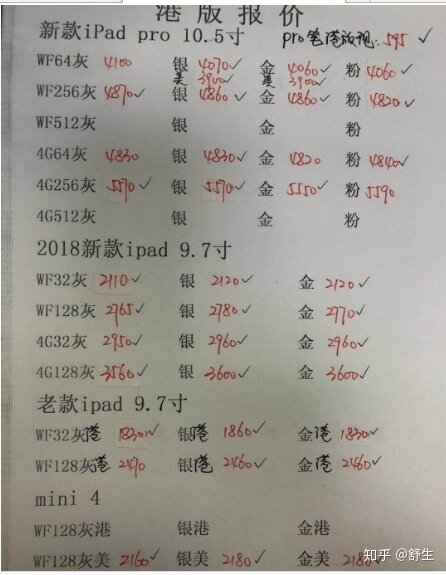 港版报价
新款iPad pro 10.5寸 pro笔港版现:595 ✓
WF64灰 4100 银 4070✓ 金 4060✓ 粉 4060✓
美 3900✓ 美 3900✓
WF256灰 4870✓ 银 4860✓ 金 4860✓ 粉 4820✓
WF512灰 银 金 粉
4G64灰 4830 银 4830✓ 金 4820 粉 4840✓
4G256灰 5570✓ 银 5570✓ 金 5550✓ 粉 5590
4G512灰 银 金 粉
2018新款ipad 9.7寸
WF32灰 2110✓ 银 2120✓ 金 2120✓
WF128灰 2765✓ 银 2780✓ 金 2770✓
4G32灰 2950✓ 银 2960✓ 金 2960✓
4G128灰 3560✓ 银 3600✓ 金 3600✓
老款ipad 9.7寸
WF32灰港 1830✓ 银港 1860✓ 金港 1830✓
WF128灰港 2490 银港 2460✓ 金港 2460✓
mini 4
WF128灰港 银港 金港
WF128灰美 2160✓ 银美 2180✓ 金美 2180✓
知乎 @舒生